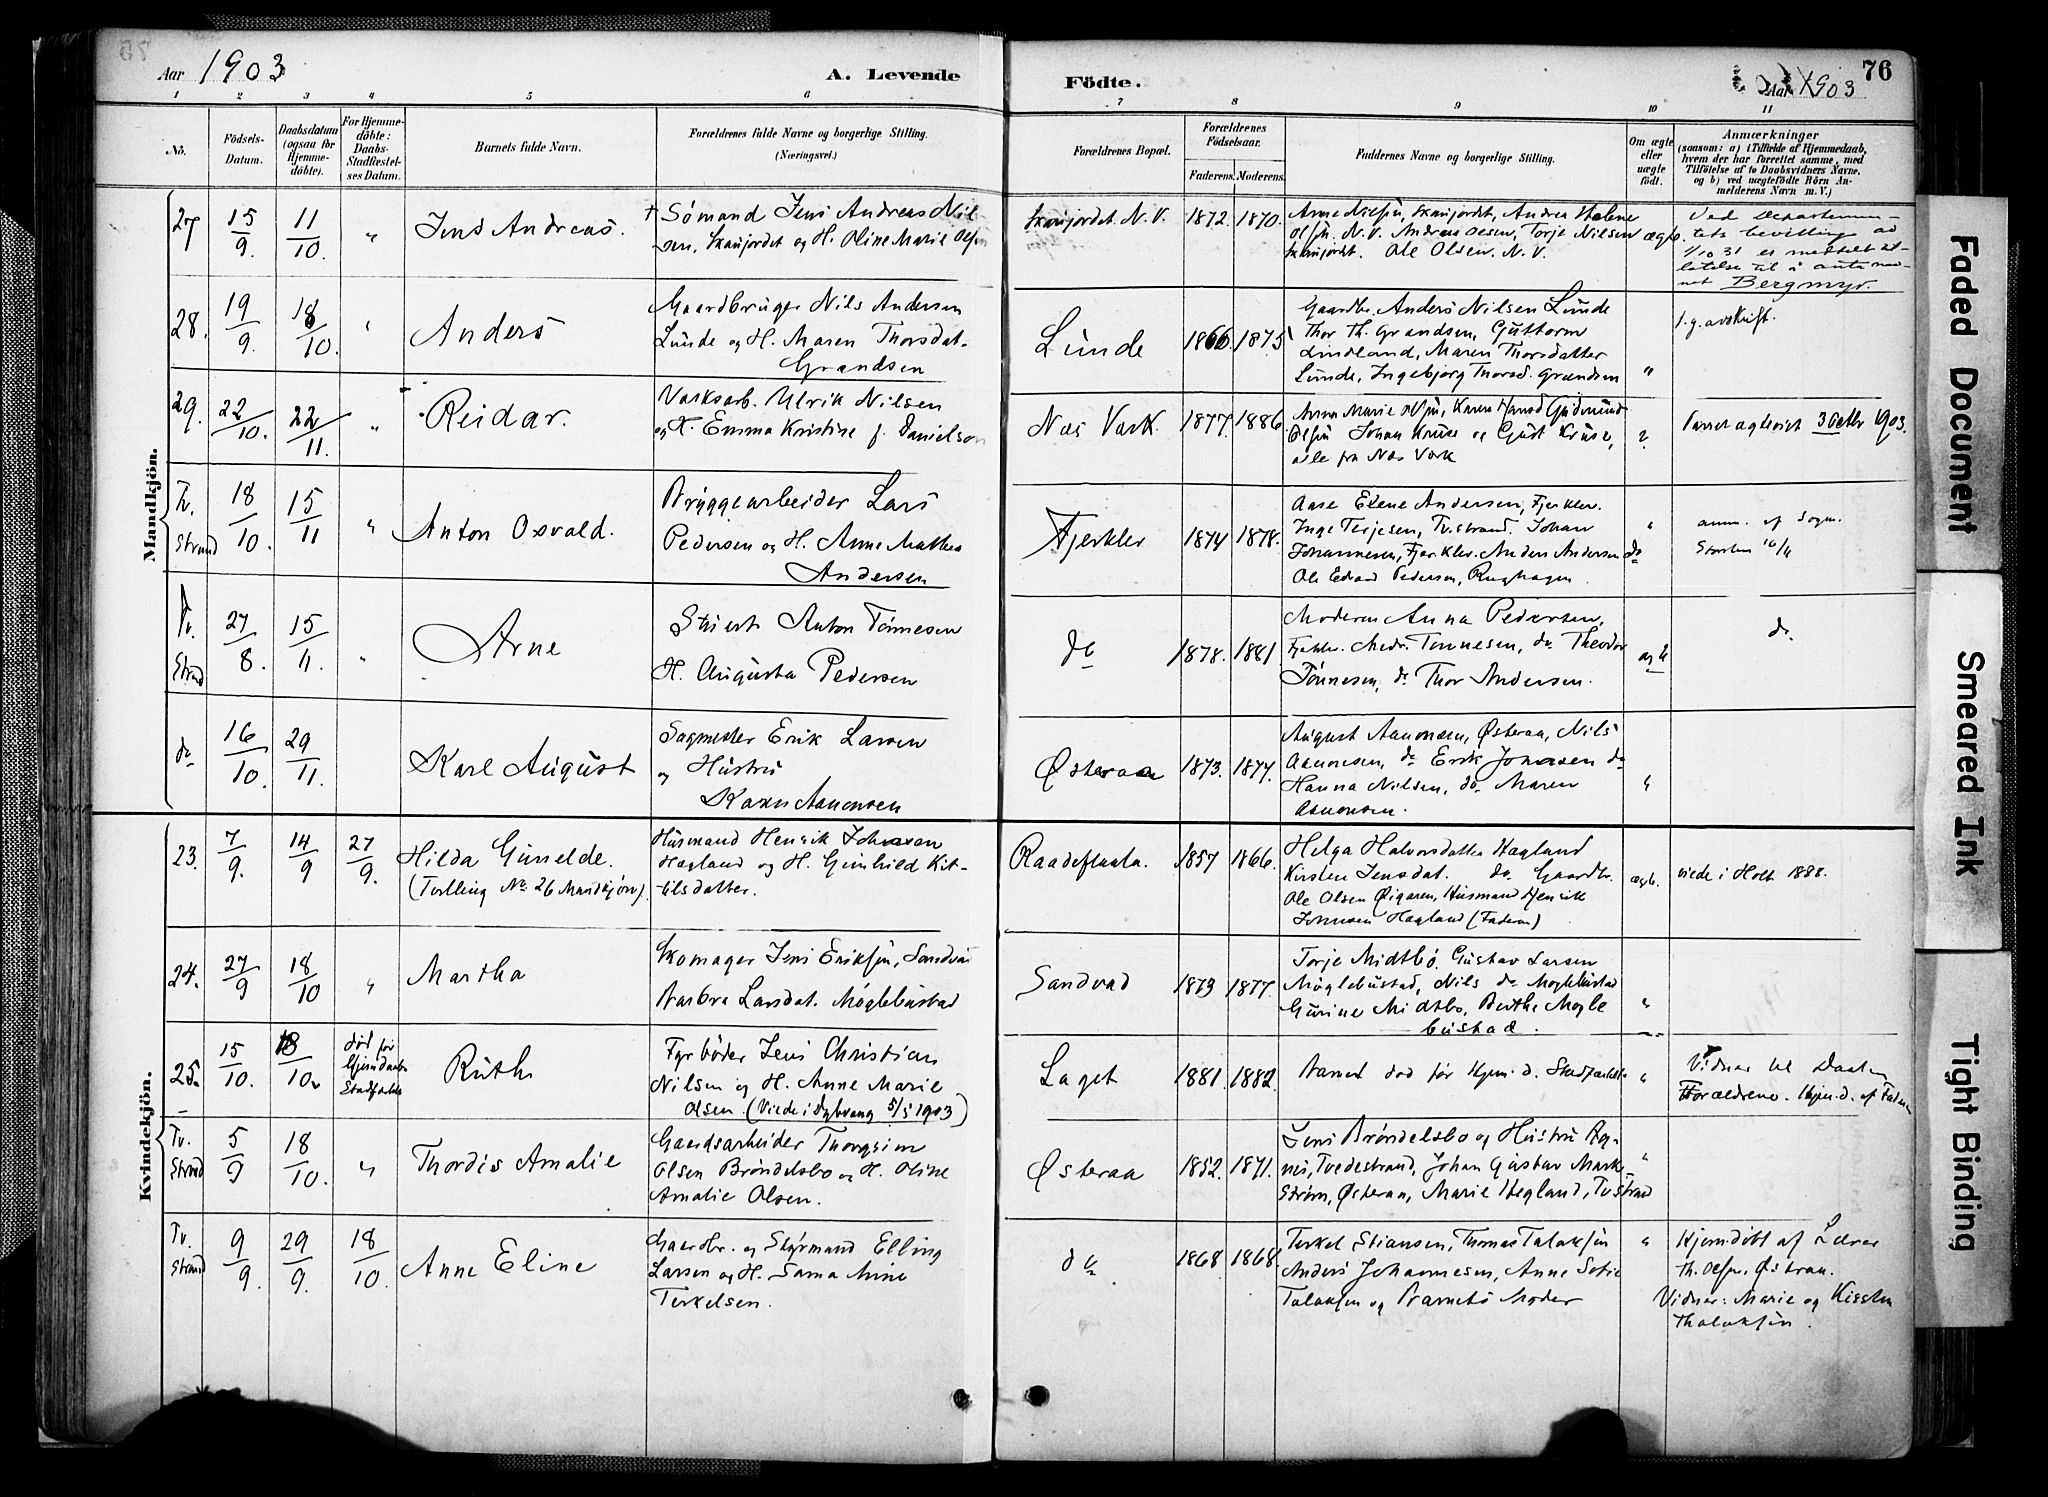 Aar 1903
A. Levende
Födte.
Aar 1903
76
1 2 3 4 5 6 7 8 9 10 11
No.
Födsels-
Datum.
Daabsdatum
(ogsaa for
Hjemme-
döbte).
For Hjemme-
döbte:
Daabs-
Stadfæstel-
ses Datum.
Barnets fulde Navn.
Forældrenes fulde Navne og borgerlige Stilling.
(Næringsvei.)
Forældrenes Bopæl.
Forældrenes
Födselsaar.
Faderens. Moderens.
Faddernes Navne og borgerlige Stilling.
Om ægte
eller
uægte
födt.
Anmærkninger
(saasom: a) i Tilfælde af Hjemmedaab,
hvem der har forrettet samme, med
Tilföielse af to Daabsvidners Navne.
og b) ved uægtefödte Börn An-
melderens Navn m. V.)
Mandkjön.
27 15/9. 11/10. " Jens Andreas.
+ Sømand Jens Andreas Nil-
sen, Skaujordet og H. Oline Marie Olsen
Skaujordet N. V. 1872. 1870.
Arne Nilsen, Skaujordet, Andrea Helene
Olsen N. V. Andreas Olsen, Torje Nilsen
Skaujordet. Ole Olsen N. V.
ægte.
Ved Departemen-
tets bevilling av
1/10 31 er meddelt til-
latelse til å anta nav-
net Bergmyr.
28. 19/9. 18/10. " Anders
Gaardbruger Nils Andersen
Lunde og H. Maren Thorsdat.
Grandsen
Lunde 1866 1875
Gaardbr. Anders Nilsen Lunde
Thor Th. Grandsen, Guttorm
Lindland, Maren Thorsdatter
Lunde, Ingebjorg Thorsd. Grandsen "
f. g. avskrift.
29. 22/10. 22/11. " Reidar.
Værksarb. Ulrik Nilsen
og H. Emma Kristine f. Danielsen
Næs Værk. 1877. 1886.
Anna Marie Olsen, Karen Gudmund
Olsen Johan Kruse og Gust Kruse,
alle fra Næs Værk
3 Octbr 1903.
Tv.
Strand 18/10. 15/11 " Anton Osvald.
Bryggearbeider Lars
Pedersen og H. Anne Mathea
Andersen
Fjerkler 1874 1878.
Aase Elene Andersen, Fjerkler.
Inge Terjesen, Tv.strand. Johan
Johannesen, Fjerkler. Anders Andersen do
Ole Edvard Pedersen, Rughagen. "
anm. af Sogn.
16/11
Tv.
Strand 27/8. 15/11. " Arne
Anton Tönnesen
H. Augusta Pedersen
do 1878. 1881.
Moderen Anna Pedersen,
Fjerkler. Tönnesen, do Theodor
Tönnesen, do Thor Andersen.
do.
do 16/10. 29/11. Karl August
Sagmester Erik Larsen
og Hustru
Karen Aanonsen
Østeraa 1873. 1877.
August Aanonsen, Østeraa, Nils
Aanonsen, do Erik Johnsen do
Hanna Nilsen, do. Maren
Aanonsen. "
Kvindekjön.
23. 7/9. 14/9 27/9. Hilda Gunelde.
(Tvilling No. 26 Mandkjön).
Husmand Henrik Johnsen
Hagland og H. Gunhild Kit-
tilsdatter.
Raadeflaata. 1857 1866.
Helga Halvorsdatter Hagland
Kirsten Jensdat. do Gaardbr.
Ole Olsen Øigaren, Husmand Henrik
Johnsen Hagland (Faderen)
ægte. viede i Holt 1888.
24. 27/9 18/10 " Martha
Skomager Jens Eriksen, Sandvad
Barbra Larsdat. Møglebustad
Sandvad 1873 1877.
Torje Midtbö. Gustav Larsen
Møglebustad, Nils do Moglebustad
Gurine Midtbö, Berthe Mogle
bustad. "
25. 15/10. 18/10. död för
Hjemdaabs
Stadfæstelse Ruth
Fyrböder Jens Christian
Nilsen og H. Anne Marie
Olsen. (Viede i Dybvaag 5/5 1903)
Laget 1881. 1882.
Barnet död för Hjem. d. Stadfæstelse "
Vidner til Daaben
Forældrene. Hjem. d. af Faderen
Tv.
Strand 5/9 18/10. " Thordis Amalie
Gaardsarbeider Thorgrim
Olsen Bröndelsbo og H. Oline
Amalie Olsen.
Østeraa 1852. 1871.
Jens Bröndelsbo og Hustru Ag-
nes, Tvedestrand, Johan Gustav Mark-
Ström, Østeraa, Marie Hegland, Tv.strand "
Tv.
Strand 9/9. 29/9. 18/10. Anne Eline
Gaardbr. og Styrmand Elling
Larsen og H. Sama Arine
Terkelsen.
do 1868 1868.
Terkel Stiansen, Thomas Talaksen
Anders Johannesen, Anne Sofie
Talaksen og Barnets Moder "
Hjemdöbt af Lærer
Th. Olsen, Østeraa.
Vidner: Marie og Kirsten
Thalaksen.
Faded Document
Smeared Ink
Tight Binding